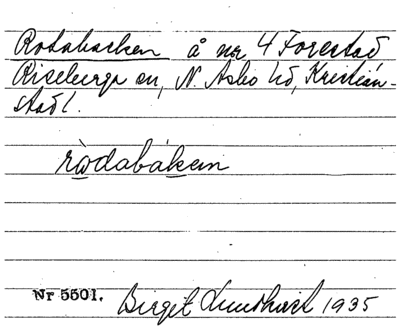 Rotabacken å nr 4 Forestad
Riseberga sn, N. Åsbo hd, Kristian-
stads l.
ròdabákεn
Nr 5501. Birgit Lundkvist 1935